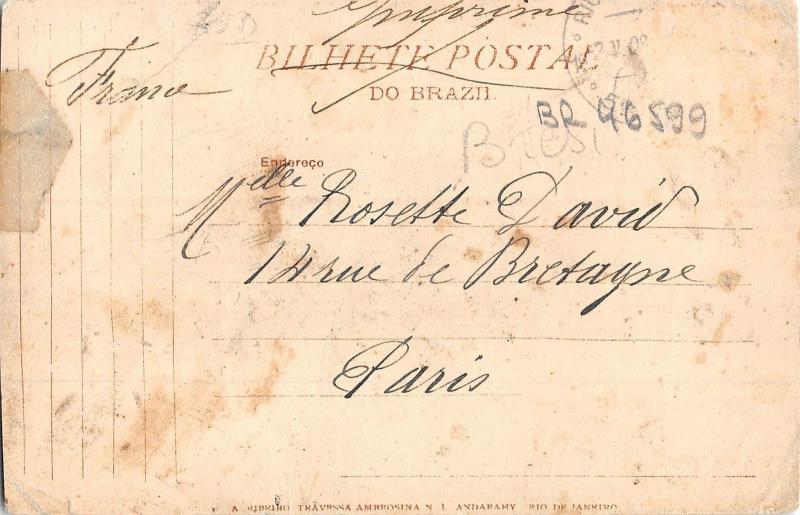 Imprimé
BILHETE POSTAL
France
DO BRAZIL
BR 46599
Bresil
Endereço
Melle Rosette David
14 rue de Bretagne
Paris
A. RIBEIRO TRAVESSA AMBROSINA N. 1. ANDARAHY RIO DE JANEIRO